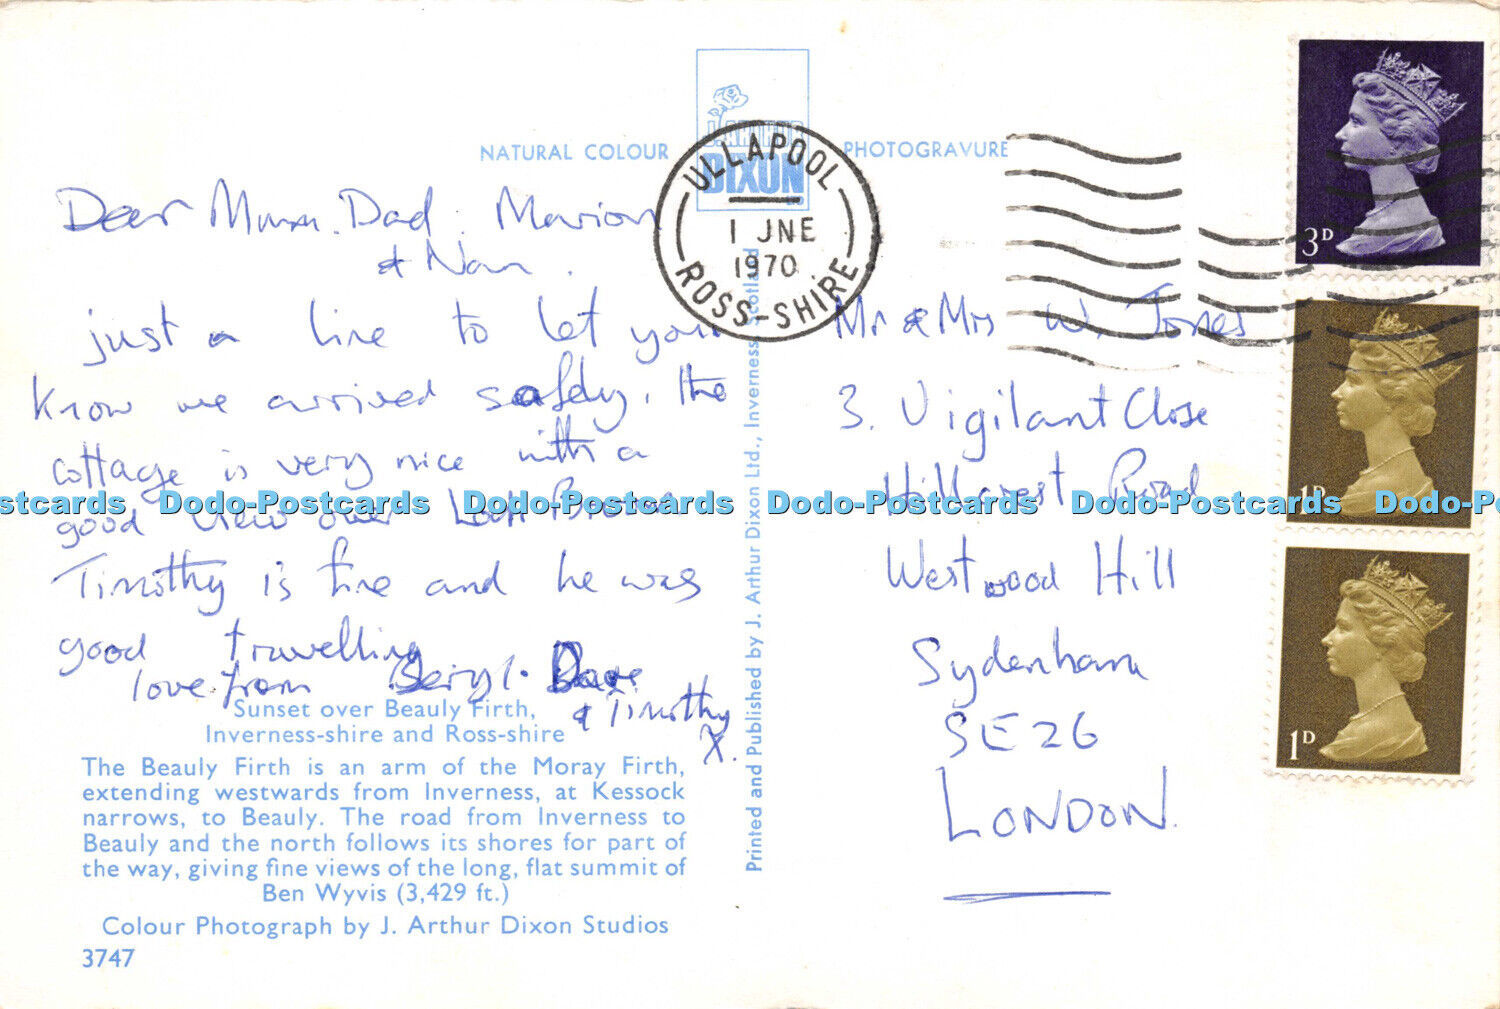 NATURAL COLOUR PHOTOGRAVURE
J. ARTHUR
DIXON
ULLAPOOL
1 JNE
1970
ROSS-SHIRE
3D
1D
1D
Dear Mum. Dad. Marion
& Nan.
just a line to let you
know we arrived safely, the
cottage is very nice with a
good view over Loch Broom
Timothy is fine and he was
good travelling
love from Beryl. Dave
& Timothy
X.
Mr & Mrs W. Jones
3. Vigilant Close
Hillcrest Road
Westwood Hill
Sydenham
SE26
LONDON.
Printed and Published by J. Arthur Dixon Ltd., Inverness, Scotland
Sunset over Beauly Firth,
Inverness-shire and Ross-shire
The Beauly Firth is an arm of the Moray Firth,
extending westwards from Inverness, at Kessock
narrows, to Beauly. The road from Inverness to
Beauly and the north follows its shores for part of
the way, giving fine views of the long, flat summit of
Ben Wyvis (3,429 ft.)
Colour Photograph by J. Arthur Dixon Studios
3747
Postcards Dodo-Postcards Dodo-Postcards Dodo-Postcards Dodo-Postcards Dodo-Po